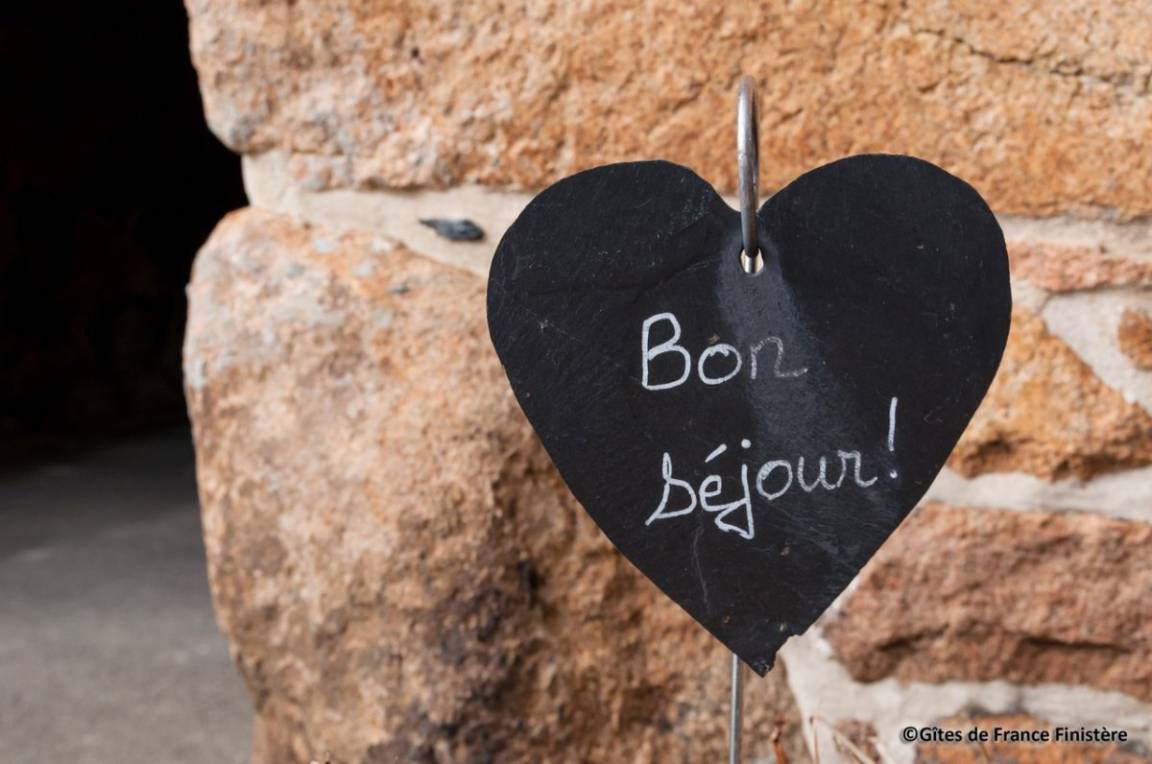 Bon
séjour!
©Gîtes de France Finistère